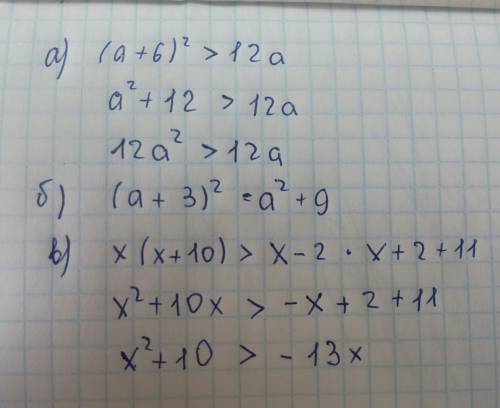 а) (a+6)² > 12a
a² + 12 > 12a
12a² > 12a
б) (a + 3)² = a² + 9
в) x(x+10) > x-2 · x+2+11
x²+10x > -x+2+11
x²+10 > -13x